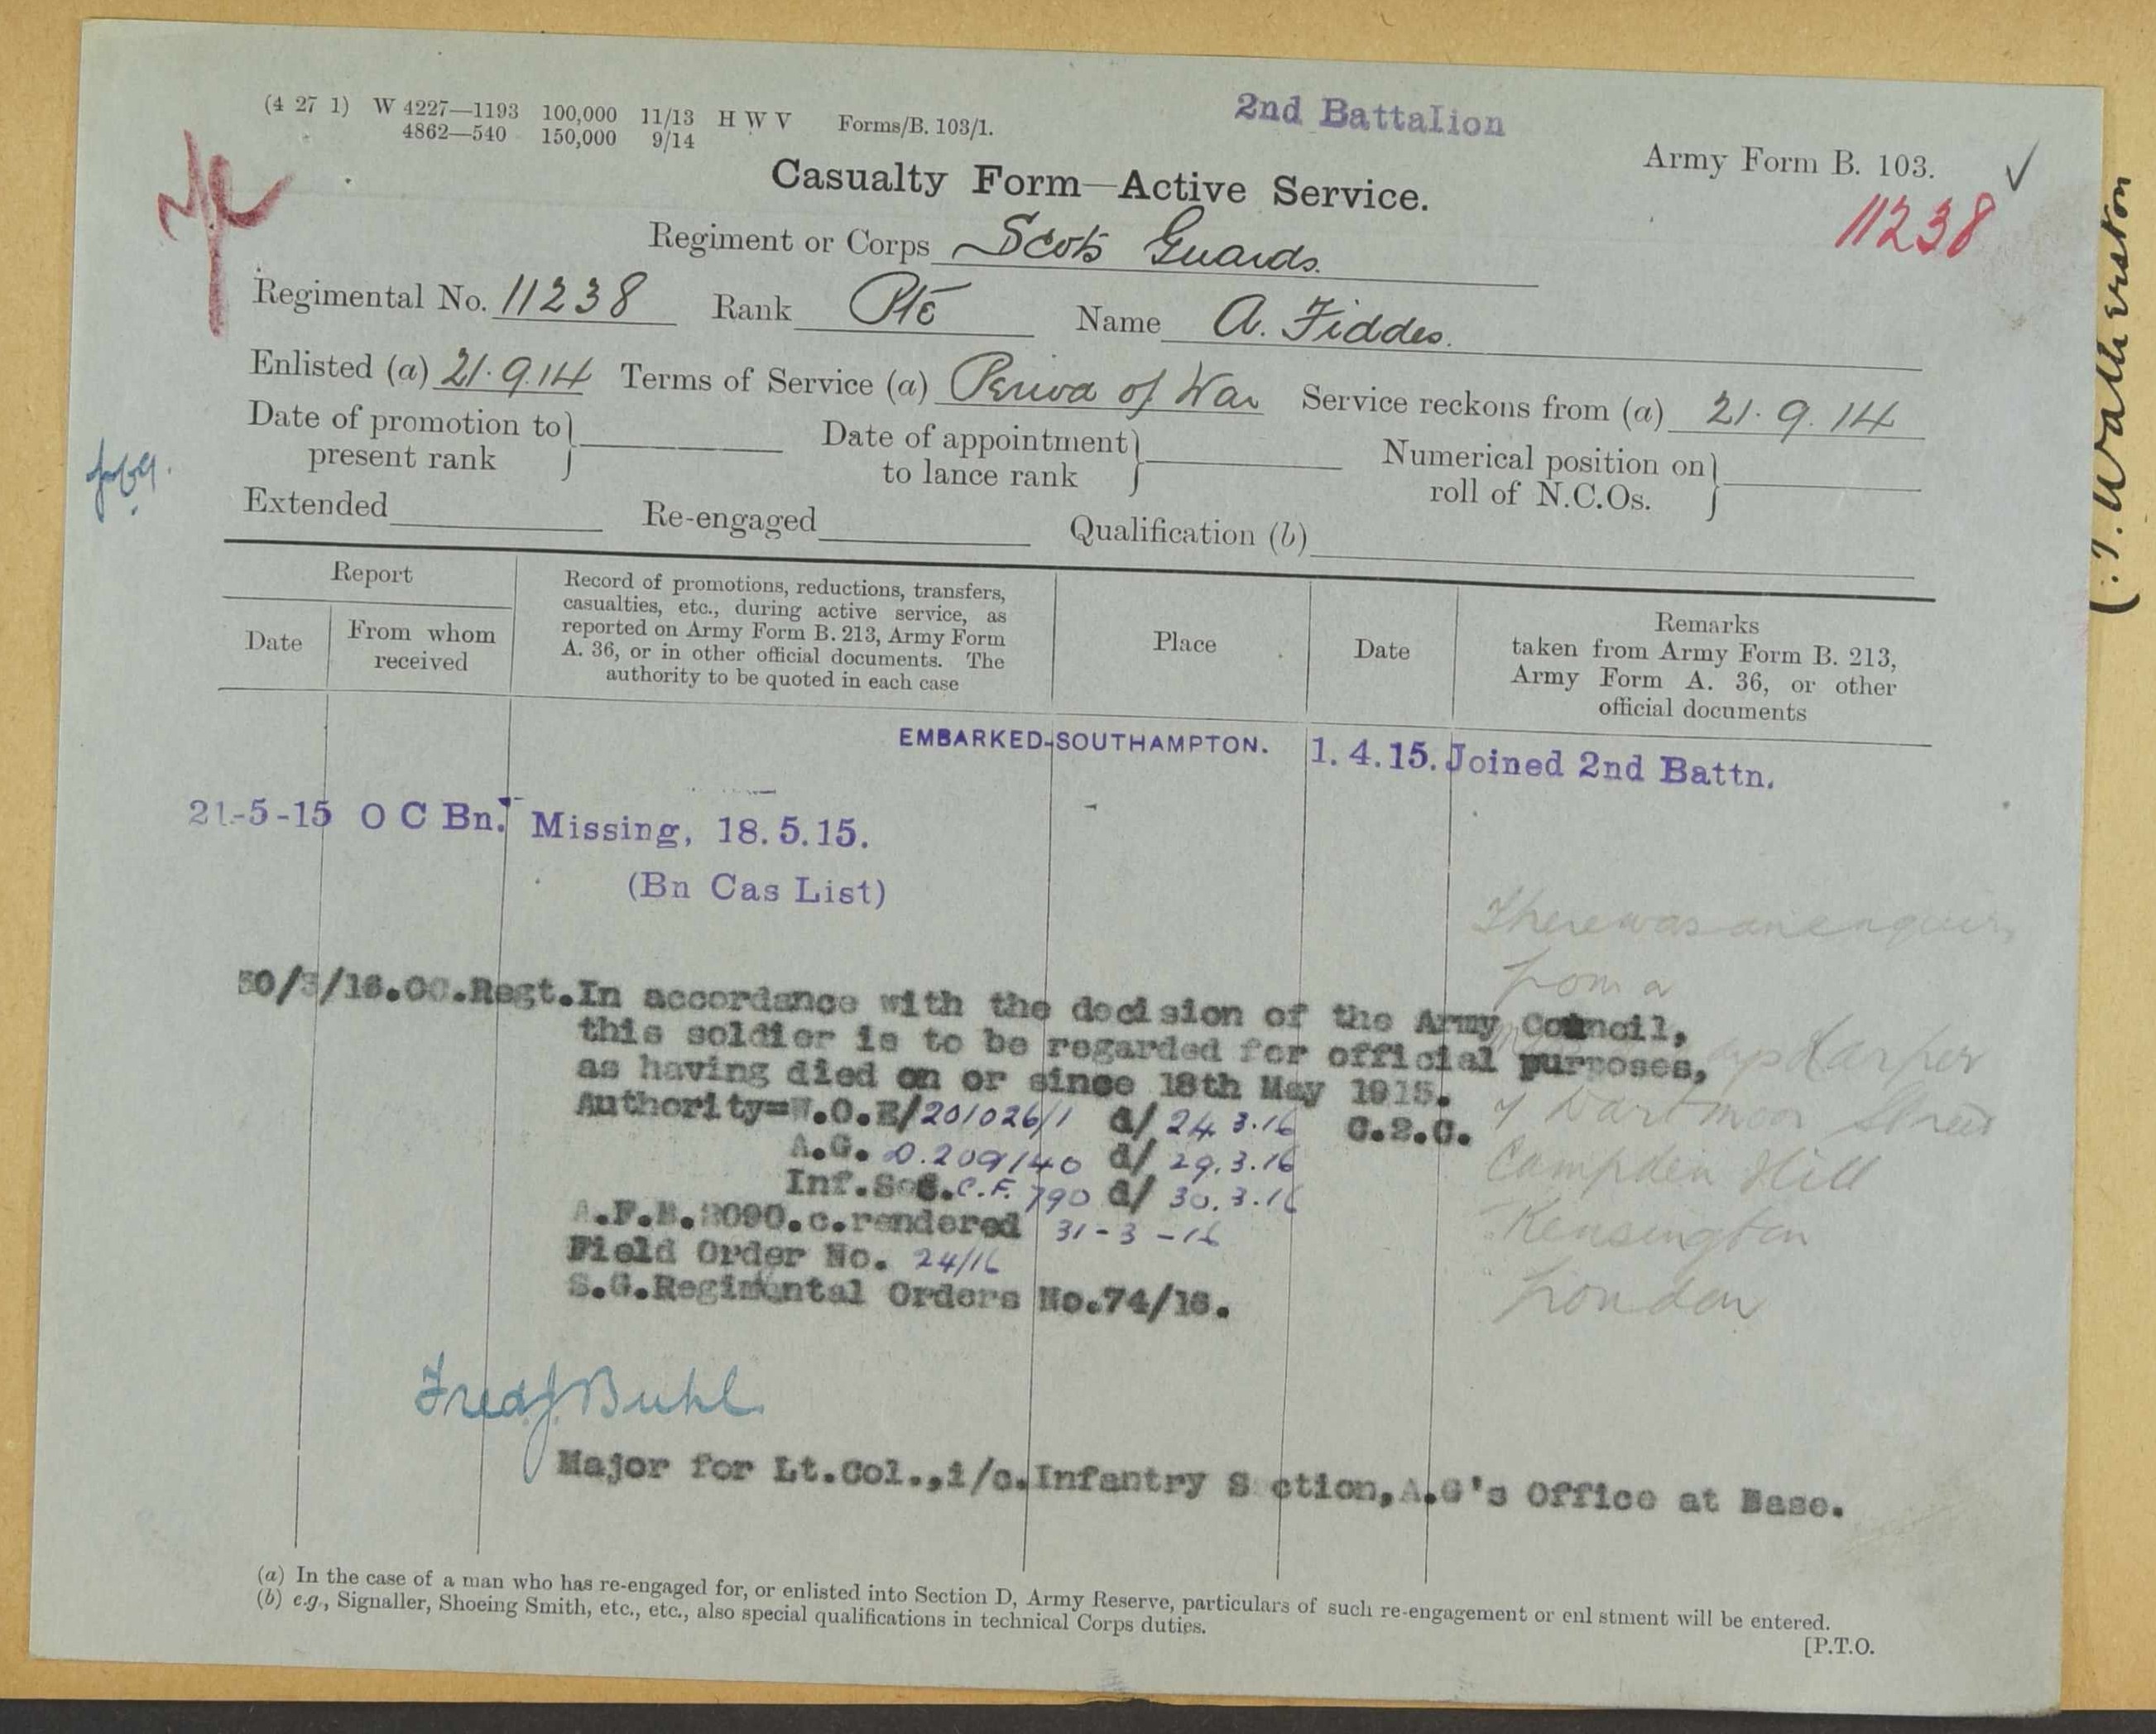 (4 27 1) W 4227—1193 100,000 11/13 H W V Forms/B. 103/1.
4862—540 150,000 9/14
2nd Battalion
Army Form B. 103.
11238
Casualty Form—Active Service.
Regiment or Corps Scots Guards.
Regimental No. 11238 Rank Pte Name A. Fiddes.
Enlisted (a) 21.9.14 Terms of Service (a) Period of War Service reckons from (a) 21.9.14
Date of promotion to } present rank
Date of appointment } to lance rank
Numerical position on } roll of N.C.Os.
Extended Re-engaged Qualification (b)
Report
Date
From whom
received
Record of promotions, reductions, transfers,
casualties, etc., during active service, as
reported on Army Form B. 213, Army Form
A. 36, or in other official documents. The
authority to be quoted in each case
Place
Date
Remarks
taken from Army Form B. 213,
Army Form A. 36, or other
official documents
EMBARKED-SOUTHAMPTON. 1.4.15. Joined 2nd Battn.
21-5-15 O C Bn. Missing, 18.5.15.
(Bn Cas List)
30/3/16. OC. Regt. In accordance with the decision of the Army Council,
this soldier is to be regarded for official purposes,
as having died on or since 18th May 1915.
Authority=W.O.E/201026/1 d/ 24.3.16 C.2.C.
A.G. D.209140 d/ 29.3.16
Inf.Sec. C.F. 790 d/ 30.3.16
A.F.B.2090.c.rendered 31-3-16
Field Order No. 24/16
S.G.Regimental Orders No.74/16.
There was an enquiry
from a
Harper
7 Dartmoor Street
Campden Hill
Kensington
London
Fred J Buhl
Major for Lt.Col.,i/c.Infantry S ction,A.G's Office at Base.
(a) In the case of a man who has re-engaged for, or enlisted into Section D, Army Reserve, particulars of such re-engagement or enl stment will be entered.
(b) e.g., Signaller, Shoeing Smith, etc., etc., also special qualifications in technical Corps duties.
[P.T.O.